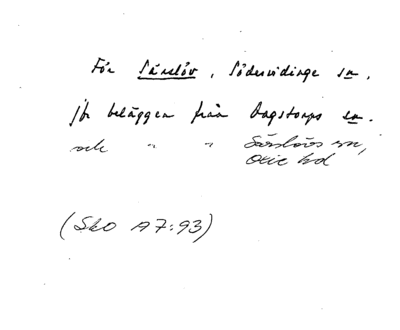 För Särslöv, Södervidinge sn,
jfr beläggen från Dagstorps sn.
och " " Särslövs sn,
Oxie hd
(Sko A7:93)